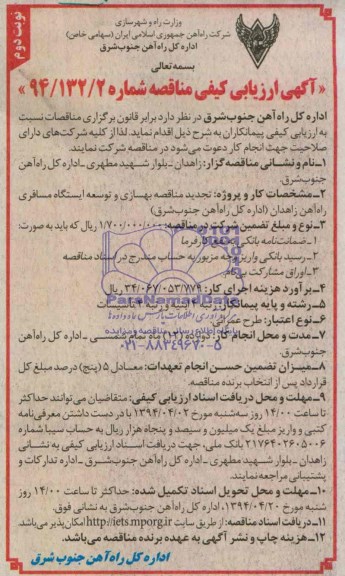 نوبت دوم
وزارت راه و شهرسازی
شرکت راه‌آهن جمهوری اسلامی ایران (سهامی خاص)
اداره کل راه‌آهن جنوب‌شرق
بسمه تعالی
«آگهی ارزیابی کیفی مناقصه شماره ۹۴/۱۳۲/۲»
اداره کل راه‌آهن جنوب‌شرق در نظر دارد برابر قانون برگزاری مناقصات نسبت
به ارزیابی کیفی پیمانکاران به شرح ذیل اقدام نماید. لذا از کلیه شرکت‌های دارای
صلاحیت جهت انجام کار دعوت می‌شود در مناقصه شرکت نمایند.
۱-نام و نشانی مناقصه‌گزار: زاهدان-بلوار شهید مطهری- اداره کل راه‌آهن
جنوب‌شرق.
۲-مشخصات کار و پروژه: تجدید مناقصه بهسازی و توسعه ایستگاه مسافری
راه‌آهن زاهدان (اداره کل راه‌آهن جنوب‌شرق)
۳-نوع و مبلغ تضمین شرکت در مناقصه: ۱/۷۰۰/۰۰۰/۰۰۰ ریال که باید به صورت:
۱-ضمانت‌نامه بانکی به نفع کارفرما
۲-رسید بانکی واریز وجه مزبور به حساب مندرج در اسناد مناقصه
۳-اوراق مشارکت بی‌نام
۴-برآورد هزینه اجرای کار: ۳۴/۰۶۷/۰۵۳/۷۷۹ ریال
۵-رشته و پایه پیمانکار:
۶-نوع اعتبار: طرح عمرانی
۷-مدت و محل انجام کار: دوازده (۱۲) ماه تمام شمسی - اداره کل راه‌آهن
جنوب‌شرق.
۸-میزان تضمین حسن انجام تعهدات: معادل ۵ (پنج) درصد مبلغ کل
قرارداد پس از انتخاب برنده مناقصه.
۹-مهلت و محل دریافت اسناد ارزیابی کیفی: متقاضیان می‌توانند حداکثر
تا ساعت ۱۴/۰۰ روز سه‌شنبه مورخ ۱۳۹۴/۰۴/۰۲ با در دست داشتن معرفی‌نامه
کتبی و واریز مبلغ یک میلیون و سیصد و پنجاه هزار ریال به حساب سیبا شماره
۲۱۷۶۴۰۲۶۰۵۰۰۶ بانک ملی، جهت دریافت اسناد ارزیابی کیفی به نشانی
زاهدان - بلوار شهید مطهری - اداره کل راه‌آهن جنوب‌شرق - اداره تدارکات و
پشتیبانی مراجعه نمایند.
۱۰-مهلت و محل تحویل اسناد تکمیل شده: حداکثر تا ساعت ۱۴/۰۰ روز
شنبه مورخ ۱۳۹۴/۰۴/۲۰، اداره کل راه‌آهن جنوب‌شرق به نشانی فوق.
۱۱-دریافت اسناد مناقصه: از طریق سایت http://iets.mporg.ir امکان‌پذیر می‌باشد.
۱۲-هزینه چاپ و نشر آگهی به عهده برنده مناقصه می‌باشد.
اداره کل راه‌آهن جنوب شرق
ParsNamadData
۰۲۱-۸۸۳۴۹۶۷۰-۵